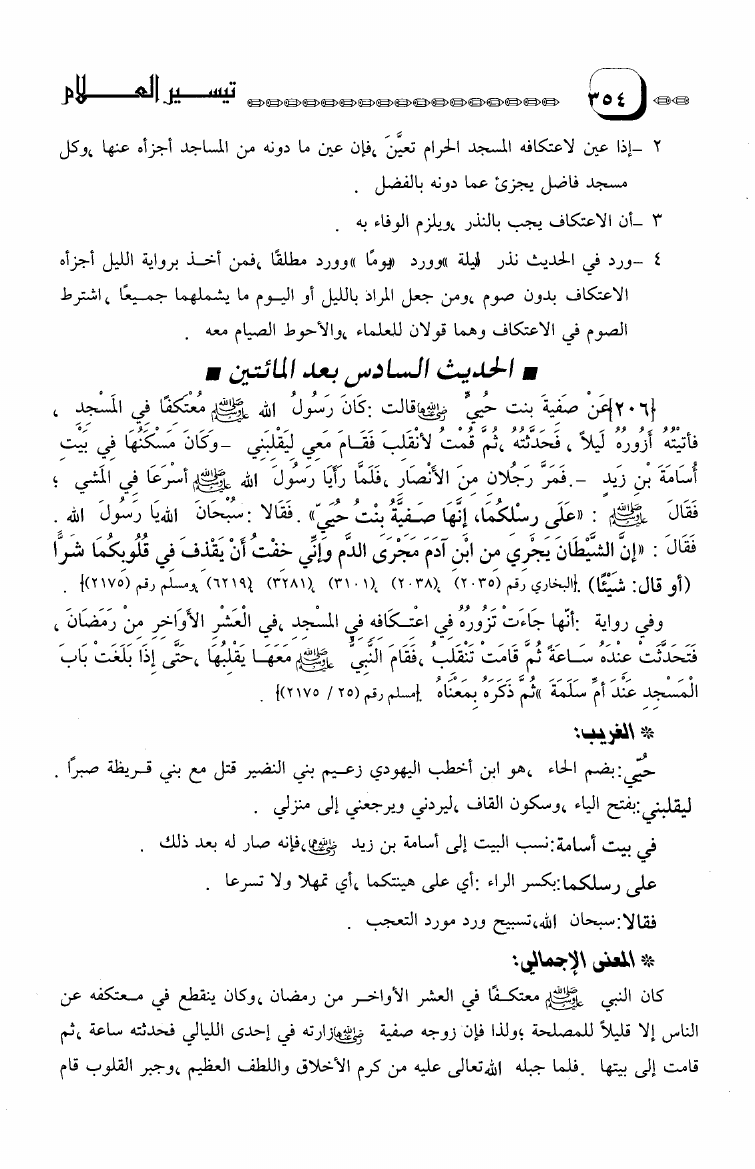 ٣٥٤ تيســـير العـــــلام
٢ –إذا عين لاعتكافه المسجد الحرام تعيَّنَ ،فإن عين ما دونه من المساجد أجزأه عنها ،وكل
مسجد فاضل يجزئ عما دونه بالفضل .
٣ –أن الاعتكاف يجب بالنذر ،ويلزم الوفاء به .
٤ –ورد في الحديث نذر ليلة »وورد «يومًا »وورد مطلقًا ،فمن أخـذ برواية الليل أجزأه
الاعتكاف بدون صوم ،ومن جعل المراد بالليل أو اليـوم ما يشملهما جمـيعًا ، اشترط
الصوم في الاعتكاف وهما قولان للعلماء ،والأحوط الصيام معه .
■ الحديث السادس بعد المائتين ■
{٢٠٦}عَنْ صَفيةَ بنت حُيَيٍّ رضي الله عنها قالت :كَانَ رَسُولُ الله ﷺ مُعْتَكفًا في المَسْجِد ،
فأتيْتُهُ أزُورُهُ لَيلاً ، فَحَدَّثْتُه ،ثُمَّ قُمْتُ لأنْقَلبَ فَقَـامَ مَعي ليَقْلبَني –وكَانَ مَسْكَنُهَا في بَيْت
أُسَامَةَ بْنِ زَيد –. فَمَرَّ رَجُلان منَ الأنْصَار ،فَلَمَّا رَأيَا رَسُولَ الله ﷺ أسْرَعَا في المَشْي ؛
فَقَالَ ﷺ : «عَلَى رسْلكُمَا، إنَّهَا صَـفيَّةُ بنْتُ حُيَيّ» .فَقَالا :سُبْحَانَ الله يَا رَسُولَ الله .
فَقَالَ : «إنَّ الشَّيْطَانَ يَجْري من ابْنِ آدَمَ مَجْرَى الدَّم وَإنِّي خفْتُ أنْ يَقْذفَ في قُلُوبكُمَا شَرًّا
(أو قال: شَيْئًا) .{البخاري رقم (٢٠٣٥) ،(٢٠٣٨) ،(٣١٠١) ،(٣٢٨١) ،(٦٢١٩) ،ومسلم رقم (٢١٧٥)} .
وفي رواية :أنَّها جَاءَتْ تَزُورُهُ في اعْتكَـافه في المسْجد ،في العَشْر الأوَاخر منْ رَمَضَانَ ،
فَتَحَدَّثَتْ عنْدَهُ سَـاعَةً ثُمَّ قَامَتْ تَنْقَلبُ ،فَقَامَ النَّبيُّ ﷺ مَعَهَـا يَقْلبُهَا ،حَتَّى إذَا بَلَغَتْ بَابَ
الْمَسْجد عنْدَ أُمِّ سَلَمَةَ »ثُمَّ ذَكَرَهُ بمَعْنَاهُ .{مسلم رقم (٢٥ / ٢١٧٥)} .
* الغريب:
حُيَيّ:بضم الحاء ،هو ابن أخطب اليهودي زعـيم بني النضير قتل مع بني قـريظة صبرًا .
ليقلبني:بفتح الياء ،وسكون القاف ،ليردني ويرجعني إلى منزلي .
في بيت أسامة:نسب البيت إلى أسامة بن زيد رضي الله عنهما ،فإنه صار له بعد ذلك .
على رسلكما:بكسر الراء :أي على هينتكما ،أي تمهلا ولا تسرعا .
فقالا:سبحان الله ،تسبيح ورد مورد التعجب .
* المعنى الإجمالي:
كان النبي ﷺ معتكـفًا في العشر الأواخـر من رمضان ،وكان ينقطع في مـعتكفه عن
الناس إلا قليلاً للمصلحة ؛ولذا فإن زوجه صفية رضي الله عنها زارته في إحدى الليالي فحدثته ساعة ،ثم
قامت إلى بيتها .فلما جبله الله تعالى عليه من كرم الأخلاق واللطف العظيم ،وجبر القلوب قام